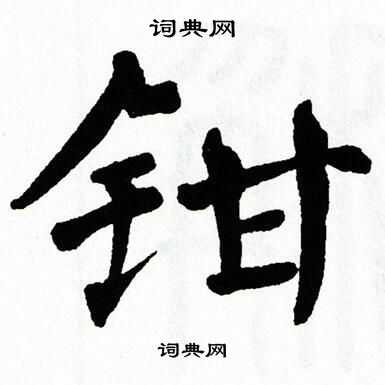 词典网
钳
词典网